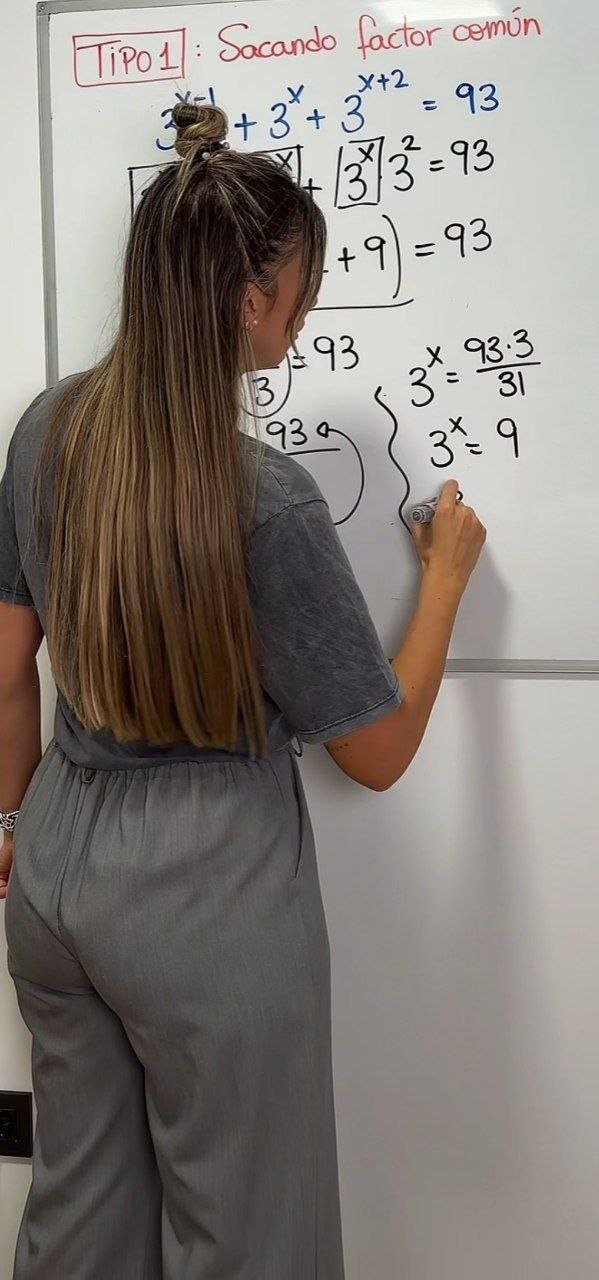 TIPO 1 : Sacando factor común
3^x-1 + 3^x + 3^x+2 = 93
x + 3^x 3^2 = 93
+ 9) = 93
3 = 93
93
3^x = 93·3/31
3^x = 9